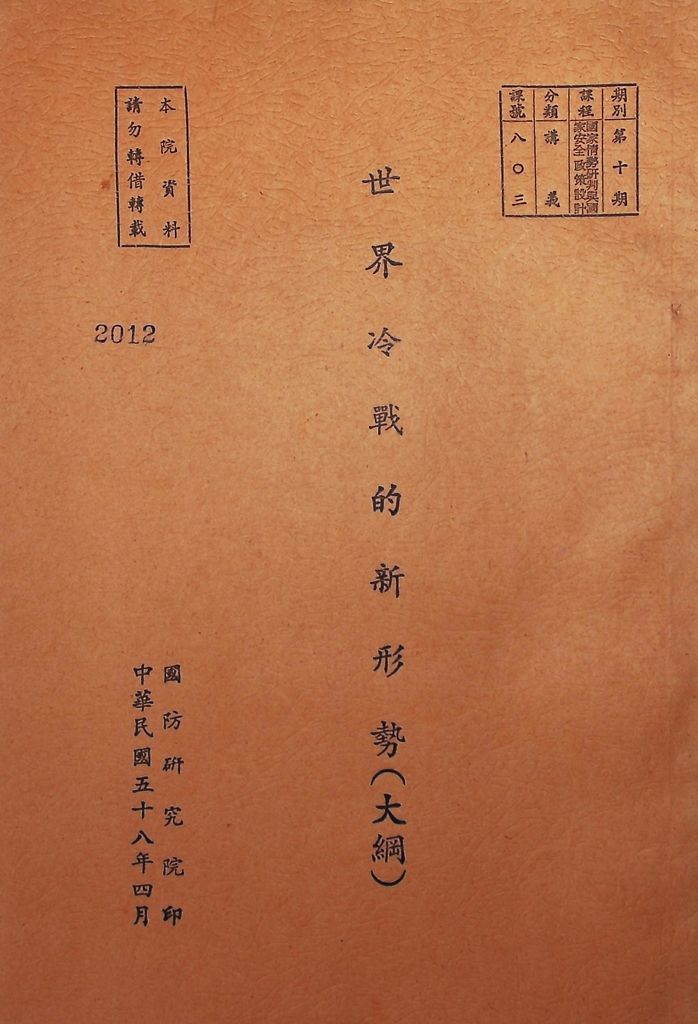 期別 第十期
課程 國家情勢研判與國家安全政策設計
分類 講義
課號 八〇三
世界冷戰的新形勢(大綱)
本院資料
請勿轉借轉載
2012
國防研究院印
中華民國五十八年四月